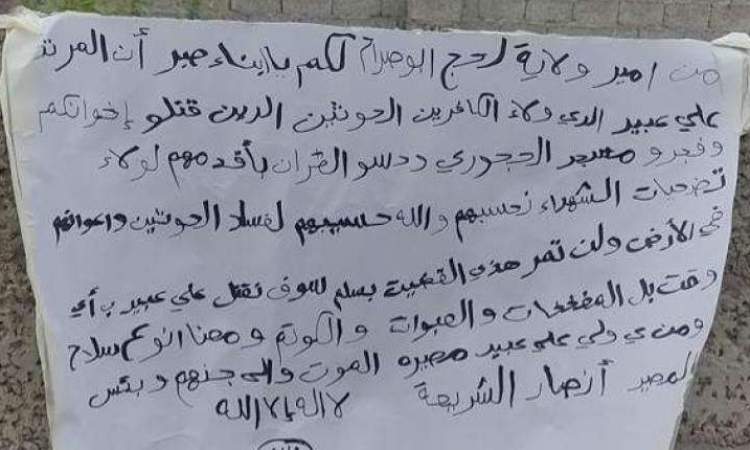 من امير ولاية لحج ابو صرام لكم يا ابناء صبر أن المرتد
علي عبيد الدي ولاء الكافرين الحوثين الدين قتلو إخوانكم
وفجرو مسجد الحجوري ودسو القران بأقدمهم لولاء
تضحيات الشهداء نحسبهم والله حسيبهم لفساد الحوثين واعوانهم
في الأرض ولن تمر هذي القضية بسلم سوف نقتل علي عبيد ب أي
وقت بل المفخخات والعبوات والكوتم ومعنا انوع سلاح
ومن ي ولي علي عبيد مصيره الموت والى جنهم وبئس
المصير أنصار الشريعة لا اله إلا الله